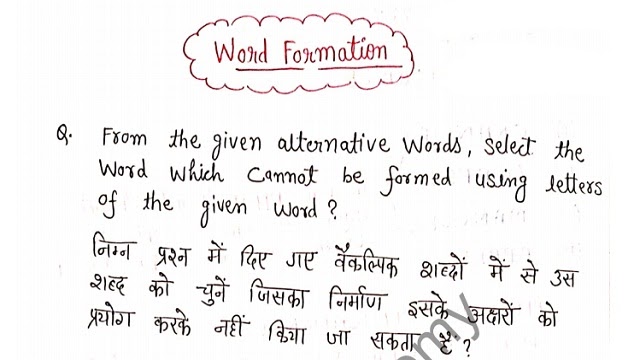 Word Formation
Q. From the given alternative words, select the
word which cannot be formed using letters
of the given word?
निम्न प्रश्न में दिए गए वैकल्पिक शब्दों में से उस
शब्द को चुनें जिसका निर्माण इसके अक्षरों को
प्रयोग करके नहीं किया जा सकता है?